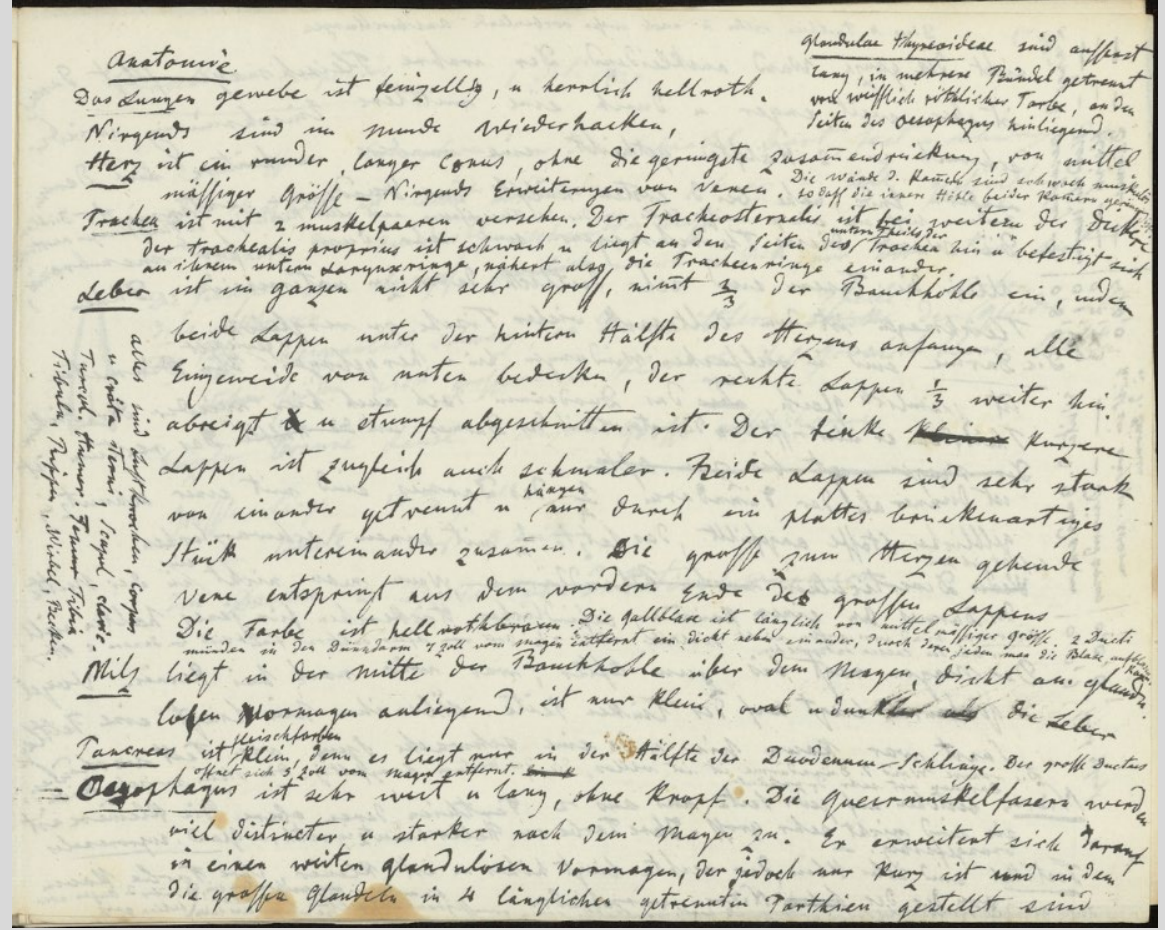 Anatomie
Das Lungengewebe ist feinzellig, u herrlich hellroth.
Nirgends sind im Munde Wiederhacken,
Glandulae thyreoideae sind äusserst
lang, in mehrere Bündel getrennt
von weisslich röthlicher Farbe, an den
Seiten des Oesophagus hinliegend.
Herz ist ein runder, langer Conus, ohne die geringste Zusam̄endrückung, von mittel
mässiger Grösse – Nirgends Erweiterungen von Venen. Die Wände d. Kam̄ern sind schwach muskulös
so dass die innere Höhle beider Kam̄ern
Trachea ist mit 2 Muskelpaaren versehen. Der Tracheosternalis ist bei weitem der Dickere
der trachealis proprius ist schwach u liegt an den Seiten des untern Theils der Trachea hin u befestigt sich
an ihrem untern Larynxringe, nähert also die Tracheenringe einander.
Leber ist im ganzen nicht sehr gross, nim̄t 2/3 der Bauchhöhle ein, indem
beide Lappen unter der hintern Hälfte des Herzens anfangen, alle
Eingeweide von unten bedecken, der rechte Lappen 1/3 weiter hin
abreigt u stumpf abgeschnitten ist. Der linke kleine kürzere
Lappen ist zugleich auch schmaler. Beide Lappen sind sehr stark
von einander getrennt u hängen nur durch ein plattes brückenartiges
Stück untereinander zusam̄en. Die grosse zum Herzen gehende
Vene entspringt aus dem vordern Ende des grossen Lappens
Die Farbe ist hellrothbraun. Die Gallblase ist länglich von mittelmässiger grösse. 2 Ducti
münden in den Dünndarm 7 Zoll vom magen entfernt ein, dicht neben einander, durch deren jeden man die Blase aufblasen kann.
Milz liegt in der Mitte der Bauchhöhle über dem Magen, dicht am glandu-
losen Vormagen anliegend, ist nur klein, oval u dunkler als die Leber
Pancreas ist fleischfarben klein, denn es liegt nur in der Hälfte der Duodenum-Schlinge. Der grosse Ductus
öffnet sich 5 Zoll vom magen entfernt.
Oesophagus ist sehr weit u lang, ohne Kropf. Die Quermuskelfasern werden
viel distincter u starker nach dem Magen zu. Er erweitert sich darauf
in einen weiten glandulösen Vormagen, der jedoch nur kurz ist und in dem
die grossen Glandeln in 4 länglichen getrennten Parthien gestellt sind
alles sind Luftknochen, Corpus
u crista sterni, Scapul, clavic.
Furcul. Humer. Femur Tibia
Fibula, Rippen, Wirbel, Becken.